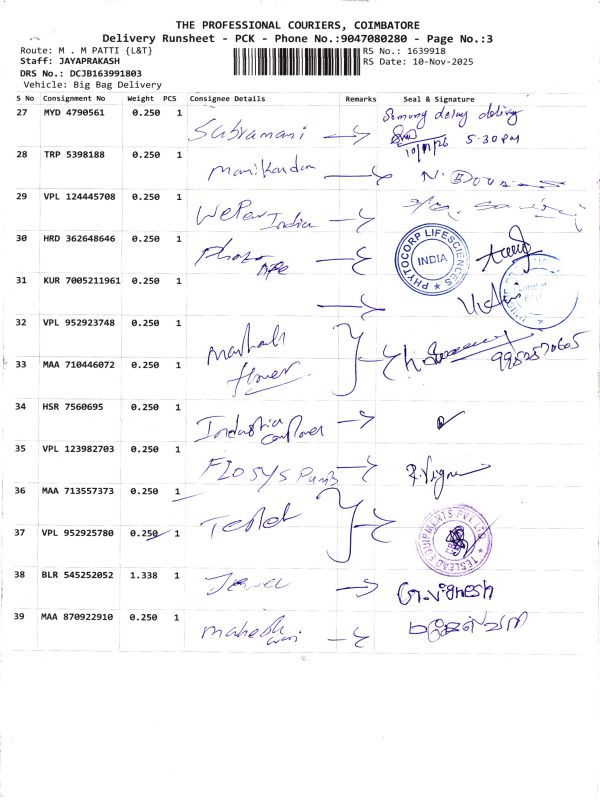 THE PROFESSIONAL COURIERS, COIMBATORE
Delivery Runsheet - PCK - Phone No.:9047080280 - Page No.:3
Route: M . M PATTI {L&T}
RS No.: 1639918
Staff: JAYAPRAKASH
RS Date: 10-Nov-2025
DRS No.: DCJB163991803
Vehicle: Big Bag Delivery
S No Consignment No Weight PCS Consignee Details Remarks Seal & Signature
27 MYD 4790561 0.250 1 Subramani delay
5:30 PM
28 TRP 5398188 0.250 1 Manikandan N.
29 VPL 124445708 0.250 1 India
30 HRD 362648646 0.250 1 PHYTOCORP LIFESCIENCES INDIA
31 KUR 7005211961 0.250 1
32 VPL 952923748 0.250 1
33 MAA 710446072 0.250 1 flower 9952570605
34 HSR 7560695 0.250 1
35 VPL 123982703 0.250 1 Flosys Pumps
36 MAA 713557373 0.250 1
37 VPL 952925780 0.250 1 EQUIPMENTS PVT LTD
38 BLR 545252052 1.338 1 Jewel G.Vignesh
39 MAA 870922910 0.250 1